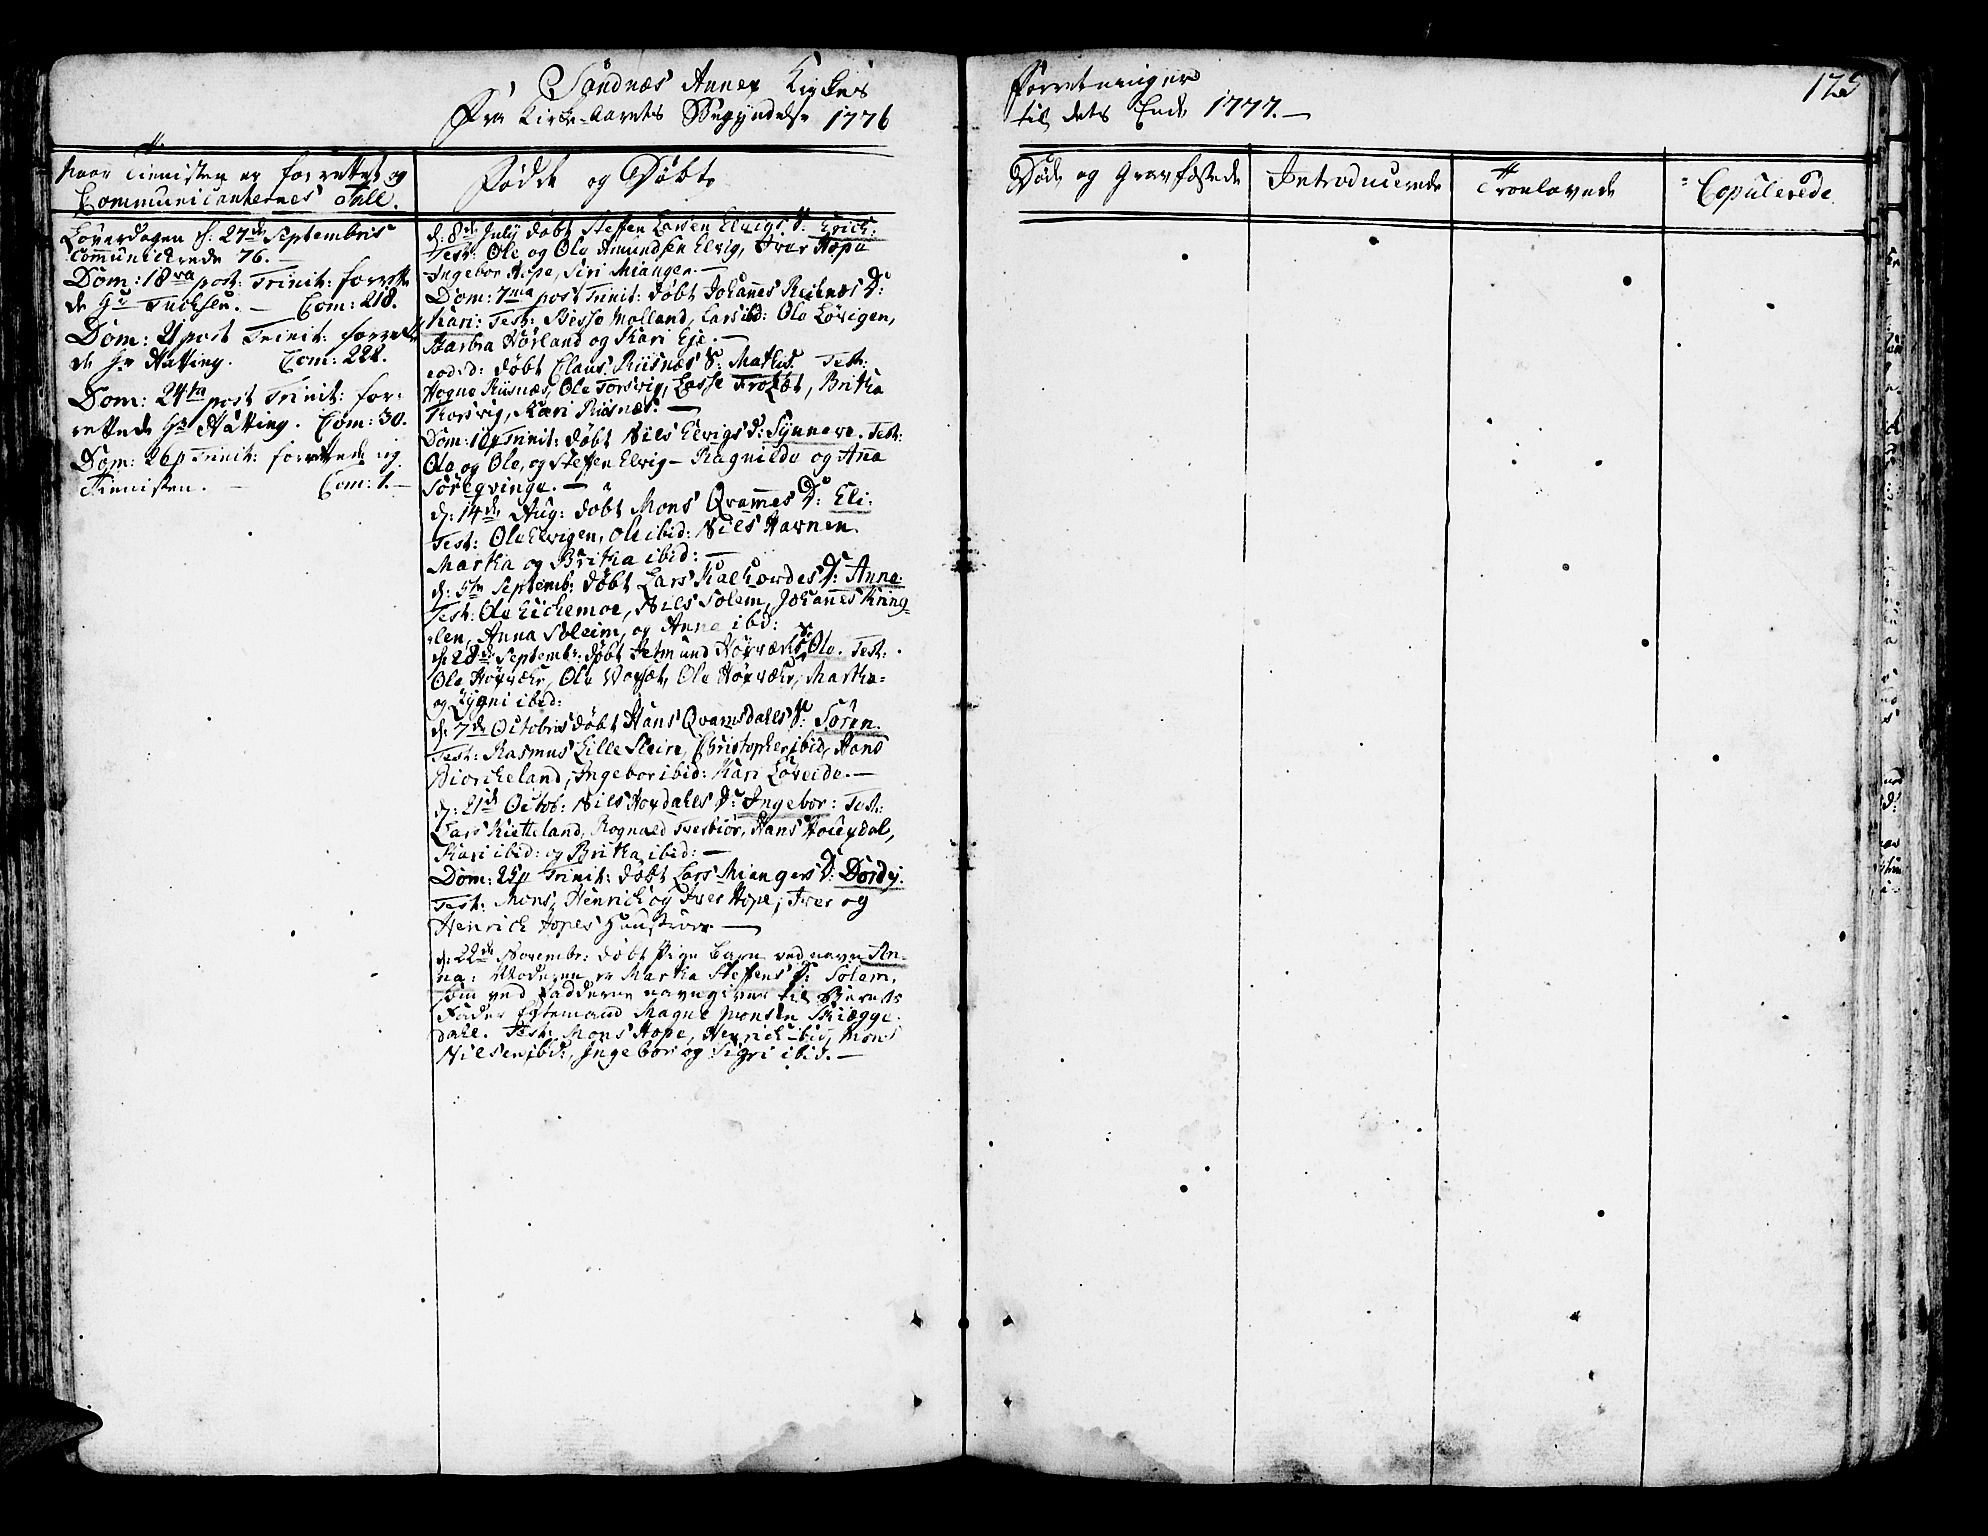 Sandnæs Annex Kirkes Forretninger
Fra Kirke-Aarets Begyndelse 1776 til dets Ende 1777.
naar Tienisten er forrettet og
Communicanternes Tall.
Løverdagen d: 27de Septembris
Communicerede 76.
Dom: 18va post: Trinit: forrette
de Hr Tuchsen. — Com: 218.
Dom: 21 post Trinit: forrette
de Hr Hatting. Com: 228.
Dom: 24ta post Trinit: for-
rettede Hr Hatting. Com: 30.
Dom: 26 p Trinit: forrettede ieg
Tienisten. — Com: 1.—
Fødde og Døbte
d: 8de July døbt Steffen Larsen Elvigs S: Erich:
Test: Ole og Ole Amundsen Elvig, Iver Hope
Ingebor Hope, Siri Mianger.—
Dom: 7ma post Trinit: døbt Johannes Reknæs D:
Kari: Test: Besse Molland, Lars ibd: Ole Lövigen,
Barbra Hörland og Kari Eje.—
eod: d: døbt Claus Riisnæs S: Mathis. Test:
Hogne Riisnæs, Ole Torsvig, Lasse Britha
Thorsvig, Kari Riisnæs.—
Dom: 10 p Trinit: døbt Niels Elvigs D: Synneve. Test:
Ole og Ole, og Steffen Elvig — Ragnilde og Aña
Söreqvinge.—
d: 14de Aug: døbt Mons Qvammes D: Eli:
Test: Ole Elvigen, Ole ibid: Niels Havnen
Martha og Britha ibid:—
d: 5te Septemb: døbt Lars Kalhovdes D: Anna:
Test: Ole Eichemoe, Niels Solem, Johannes Kring-
len, Anna Soleim, og Anne ibd:
d: 28de Septembr: døbt Setmund Höyvæhrs S: Ole. Test:
Ole Höyvæhr, Ole Ole Höyvæhr, Martha
og Sygni ibid:
d: 7de Octobris døbt Hans Qvamsdahls S: Sören.
Test: Rasmus Lille Sleire, Christopher ibid, Hans
Biorckeland, Ingebor ibid: Kari Löveide.—
d: 21de Octob: Niels Höydahls D: Ingebor: Test:
Lars Kietteland, Rognald Tverbiör, Hans Höyedal,
Kari ibid: og Britha ibid:—
Dom: 22 p Trinit: døbt Lars Miangers D: Dordy.
Test: Mons, Henrich og Iver Hope, Iver og
Henrich Hopes Hustruer.—
d: 22de Novembr: døbt Pige Barn ved navn An-
na: Moderen er Martha Steffens D: Solem,
som ved Fadderne navngiver til Barnets
Fader Magne Monsen Skiægge-
dahl. Test: Mons Hope, Henrich ibid, Mons
Nielsen ibd:, Ingebor og Sigri ibid.—
125
Døde og Gravfæstede
Introducerede
Troelovede
Copulerede